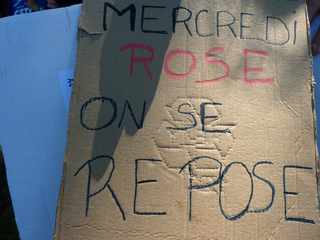 MERCREDI
ROSE
ON SE
REPOSE